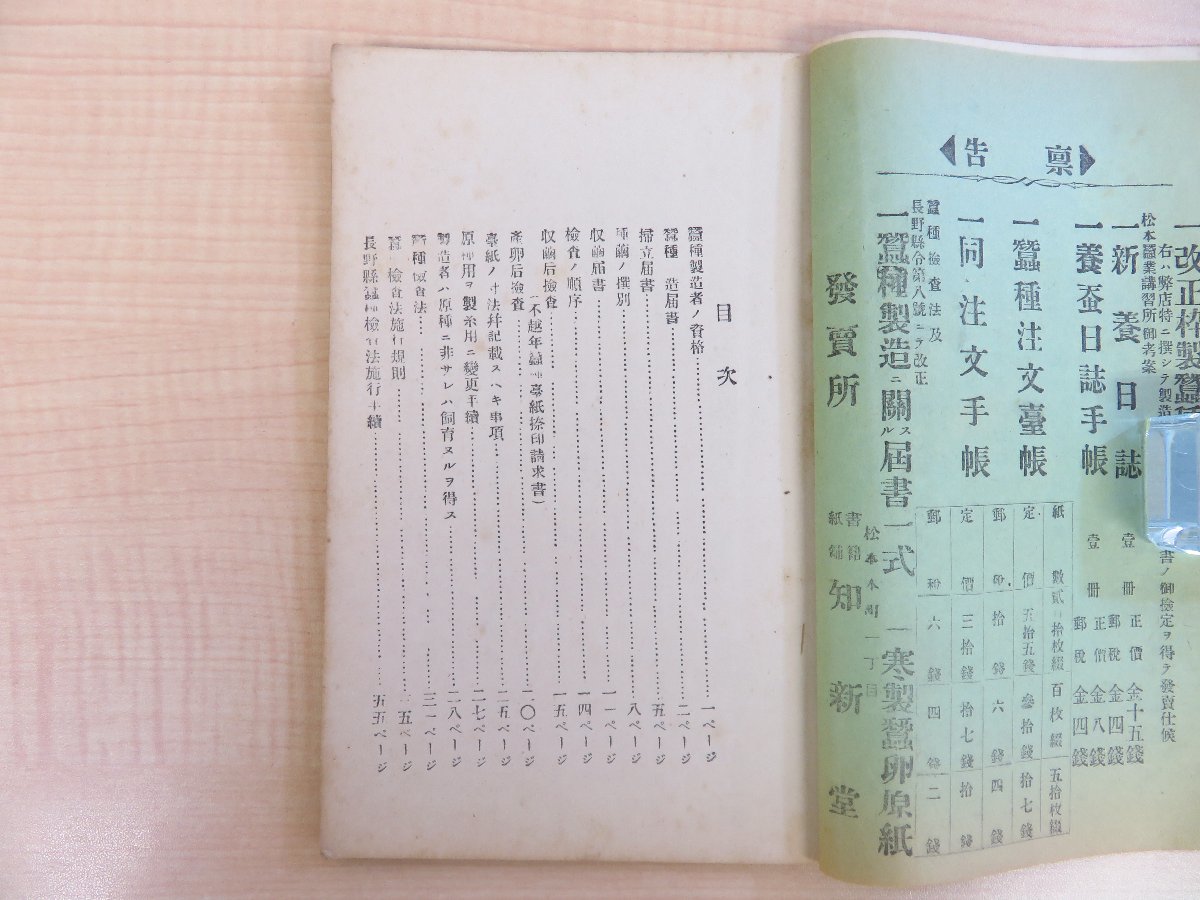 稟告
一改正枠製蠶
右ハ弊店特ニ撰シテ製造
書ノ御檢定ヲ得テ發賣仕候
松本蠶業講習所御考案
一新養日誌 壹冊 正價金十五錢 郵稅金四錢
一養蚕日誌手帳 壹冊 正價金八錢 郵稅金四錢
紙數貳百拾枚綴 百枚綴 五拾枚綴
一蠶種注文臺帳 定價 五拾五錢 參拾錢 十七錢
郵稅 拾錢 六錢 四錢
一同注文手帳 定價 三拾錢 拾七錢 拾錢
郵稅 六錢 四錢 二錢
蠶種檢査法及
長野縣令第八號ニテ改正
一蠶種製造ニ關スル屆書一式 一寒製蠶卵原紙
松本本町一丁目
發賣所 書籍紙舖 知新堂
目次
蠶種製造者ノ資格 一ページ
蠶種 造屆書 二ページ
掃立屆書 五ページ
種繭ノ撰別 八ページ
収繭屆書 一一ページ
檢査ノ順序 一四ページ
収繭后檢査 一五ページ
(不越年蠶種臺紙捺印請求書)
產卵后檢査 一〇ページ
臺紙ノ寸法幷記載スヘキ事項 二五ページ
原種用ヲ製糸用ニ變更手續 二七ページ
製造者ハ原種ニ非サレハ飼育スルヲ得ス 二八ページ
蠶種檢査法 三一ページ
蠶 檢査法施行規則 三五ページ
長野縣蠶種檢査法施行手續 五五ページ